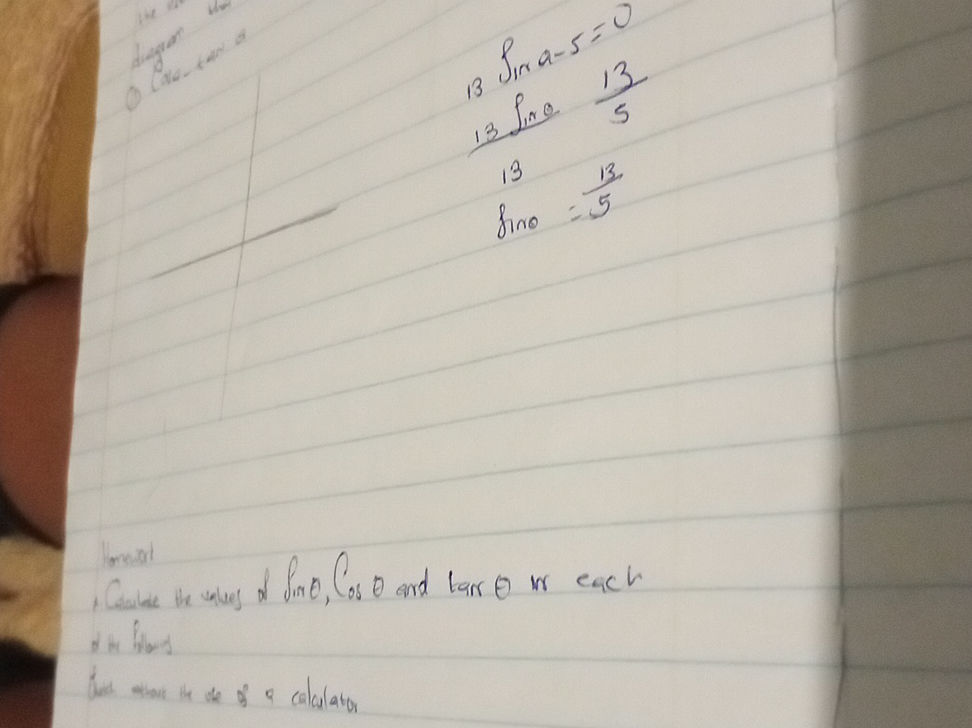 the
diagram
① Cosa - tan a
13 Sin a - 5 = 0
13 Sin θ 13
13 5
Sin θ = 13/5
Homework
Calculate the values of Sin θ, Cos θ and tan θ in each
of the following
without the use of a calculator